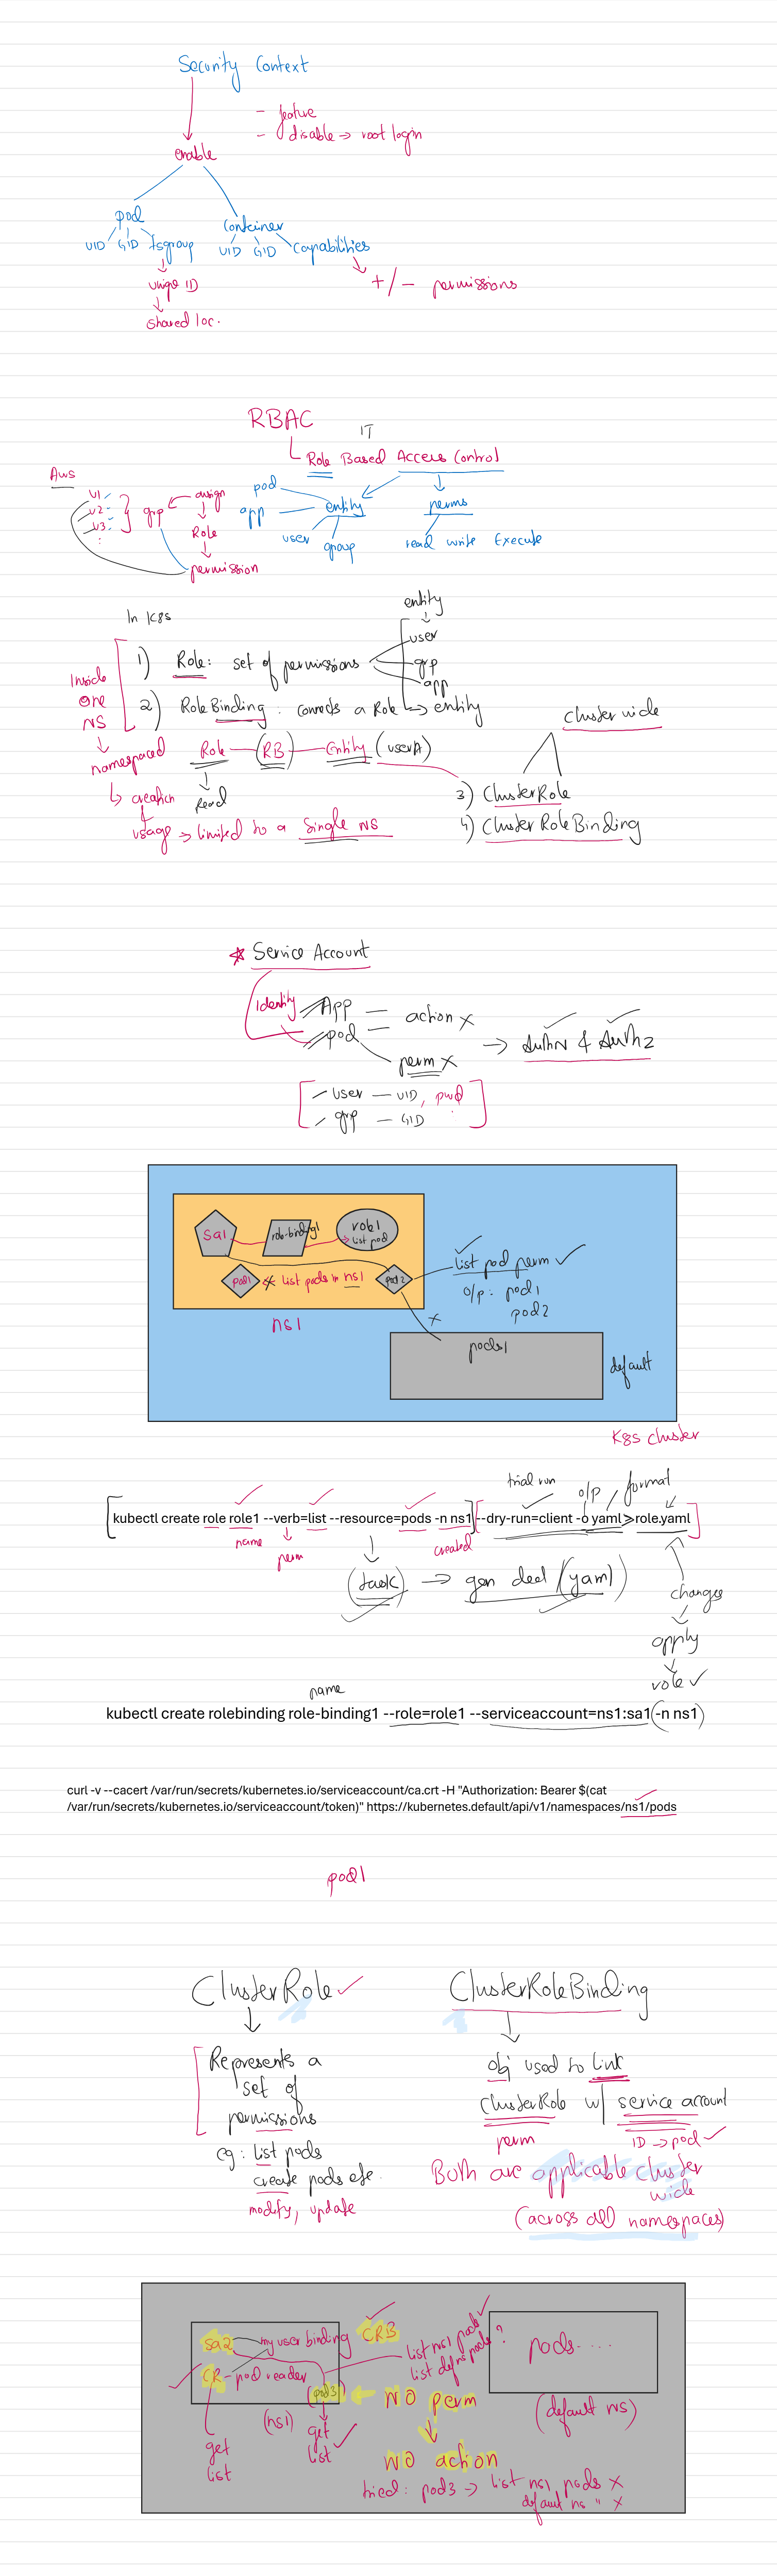 Security Context
- feature
- disable → root login
enable
pod
Container
UID GID fsgroup
UID GID Capabilities
unique ID
+/- permissions
shared loc.
RBAC
IT
Role Based Access Control
Aws
U1
U2
U3
:
} grp ← assign
Role
permission
pod
app
entity
user
group
perms
read write Execute
In K8s
entity
user
grp
app
1) Role: set of permissions
2) RoleBinding: connects a Role → entity
Inside
one
NS
namespaced
creation
usage → limited to a single NS
Role — (RB) — Entity (userA)
read
cluster wide
3) ClusterRole
4) ClusterRoleBinding
* Service Account
Identity
App
pod
action x
perm x
→ AuthN & AuthZ
user — UID, pwd
grp — GID
sa1
role-binding1
role1
→ list pod
pod1
list pods in ns1
pod2
list pod perm ✓
o/p: pod1
pod2
ns1
x
pods1
default
K8s cluster
trial run
o/p / format
kubectl create role role1 --verb=list --resource=pods -n ns1 --dry-run=client -o yaml>role.yaml
name
perm
created
(task) → gen decl (yaml)
changes
apply
role ✓
name
kubectl create rolebinding role-binding1 --role=role1 --serviceaccount=ns1:sa1 (-n ns1)
curl -v --cacert /var/run/secrets/kubernetes.io/serviceaccount/ca.crt -H "Authorization: Bearer $(cat
/var/run/secrets/kubernetes.io/serviceaccount/token)" https://kubernetes.default/api/v1/namespaces/ns1/pods
pod1
ClusterRole ✓
Represents a
set of
permissions
eg: list pods
create pods etc.
modify, update
ClusterRoleBinding
obj used to link
ClusterRole w/ service account
perm
ID → pod ✓
Both are applicable cluster
wide
(across all namespaces)
sa2
my user binding CRB
CR - pod reader
pod3
(ns1)
get
list
get
list
list ns1 pods ✓
list def ns pods ?
NO perm
NO action
pods....
(default ns)
tried: pod3 → list ns1 pods x
default ns " x